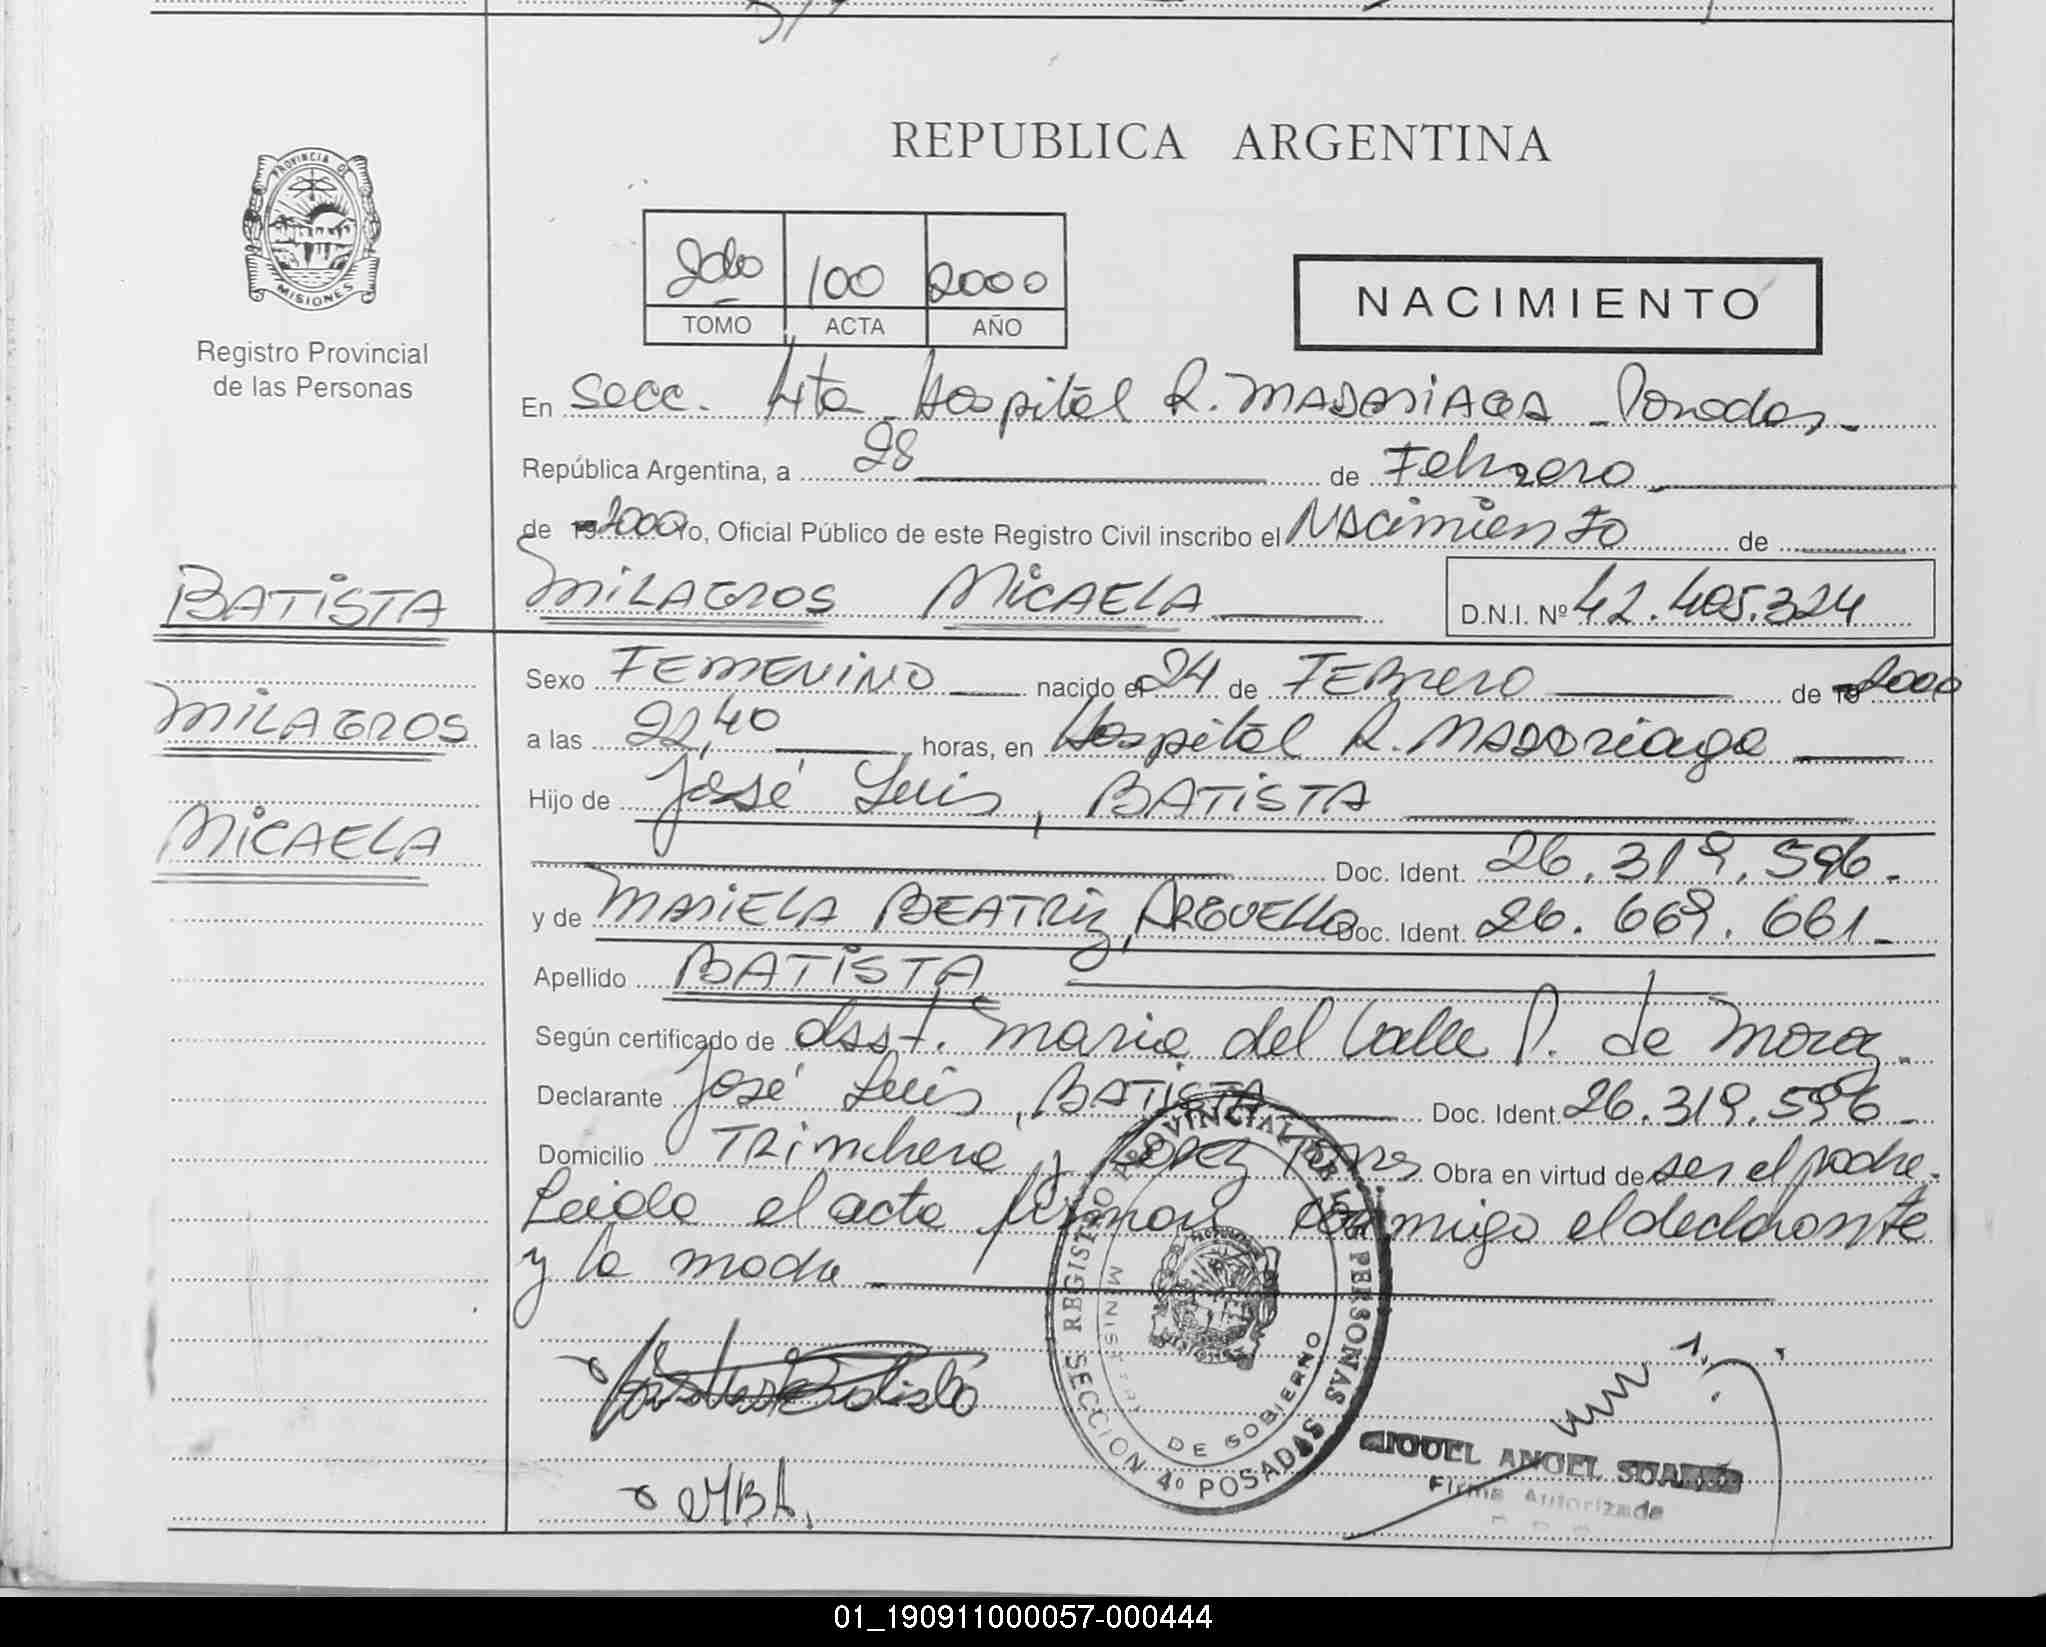 REPUBLICA ARGENTINA
PROVINCIA DE
MISIONES
Registro Provincial
de las Personas
2do 100 2000
TOMO ACTA AÑO
NACIMIENTO
En Secc. 4ta Hospital R. MADARIAGA - Posadas.-
República Argentina, a 28 de Febrero
de 19 2000 Yo, Oficial Público de este Registro Civil inscribo el Nacimiento de
BATISTA
MILAGROS MICAELA D.N.I. Nº 42.405.324
MILAGROS
MICAELA
Sexo FEMENINO nacido el 24 de FEBrero de 19 2000
a las 22,40 horas, en Hospital R. MADAriaga
Hijo de José Luis, BATISTA
Doc. Ident. 26.319.596.-
y de MARIELA BEATRIZ, ARGUELLO Doc. Ident. 26.669.661.-
Apellido BATISTA
Según certificado de obst. Maria del Valle P. de Moraz.-
Declarante José Luis, BATISTA Doc. Ident. 26.319.596.-
Domicilio Trinchera y López Torres Obra en virtud de ser el padre.
Leida el acta firman conmigo el declarante
y la madre
REGISTRO PROVINCIAL DE LAS PERSONAS
SECCION 4º POSADAS
MINISTERIO DE GOBIERNO
MISIONES
José Luis Batista
MBA.
MIGUEL ANGEL SUAREZ
Firma Autorizada
01_190911000057-000444